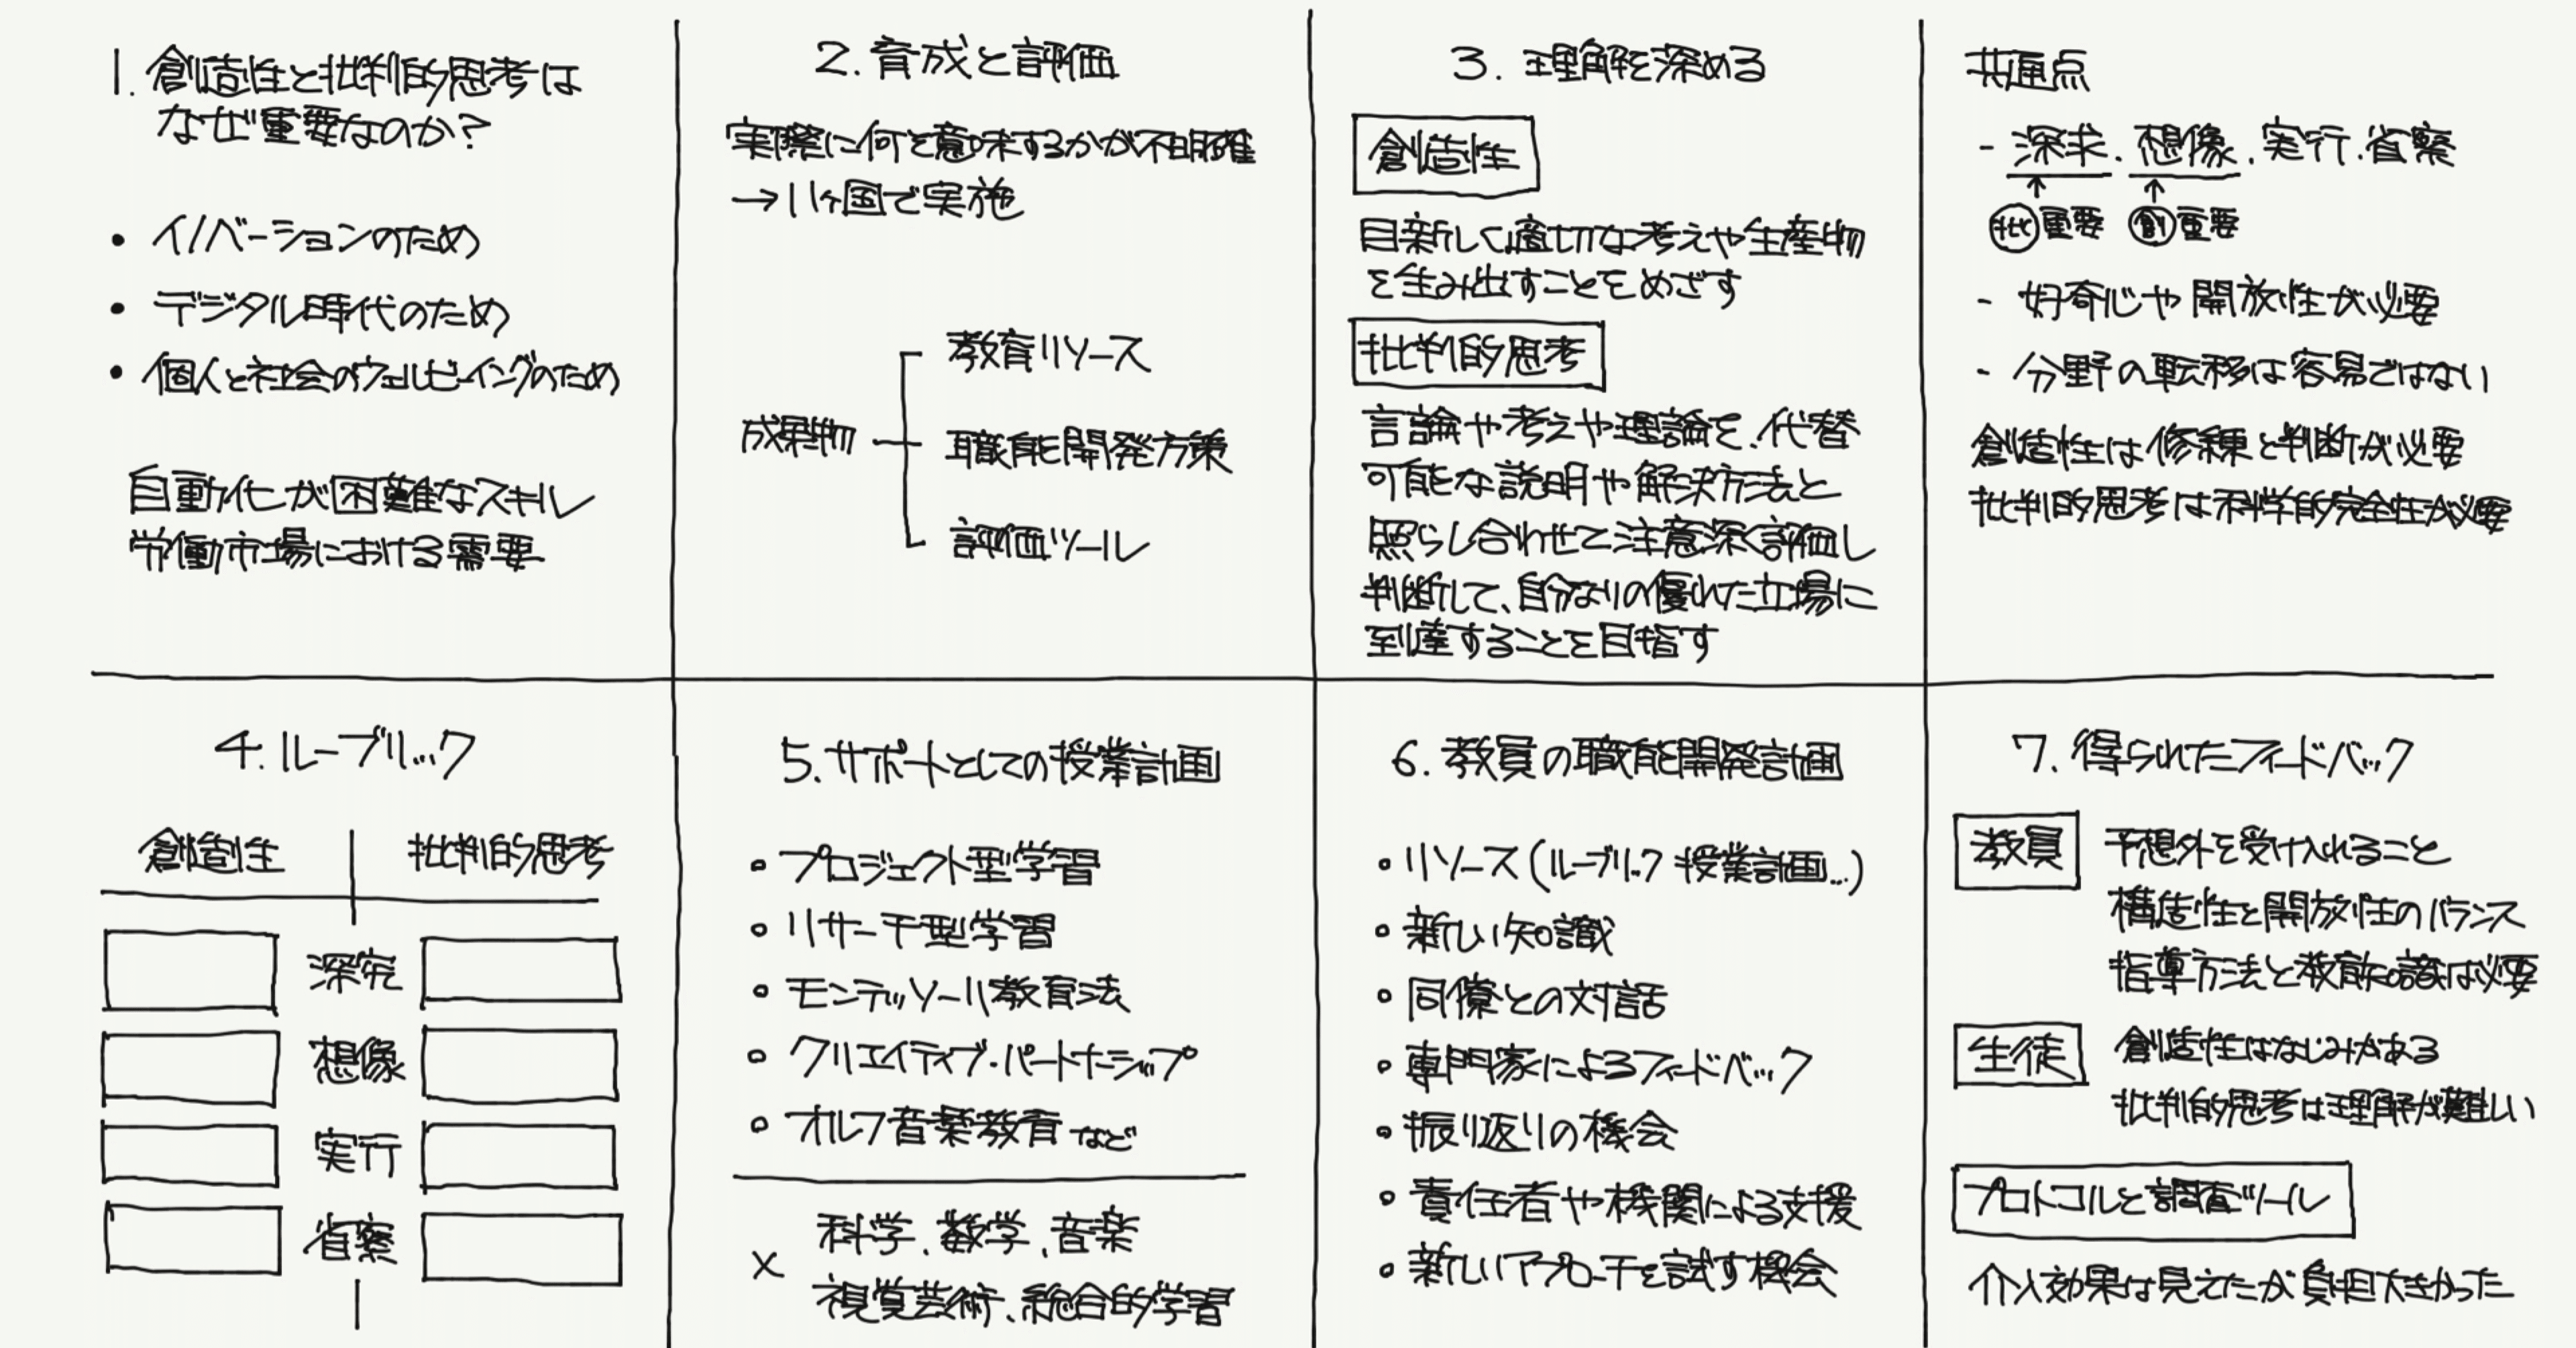 1. 創造性と批判的思考は
なぜ重要なのか?
• イノベーションのため
• デジタル時代のため
• 個人と社会のウェルビーイングのため
自動化が困難なスキル
労働市場における需要
2. 育成と評価
実際に何を意味するかが不明確
→11ヶ国で実施
成果物
教育リソース
職能開発方策
評価ツール
3. 理解を深める
創造性
目新しく適切な考えや生産物
を生み出すことをめざす
批判的思考
言論や考えや理論を、代替
可能な説明や解決方法と
照らし合わせて注意深く評価し
判断して、自分なりの優れた立場に
到達することを目指す
共通点
- 深求、想像、実行、省察
↑ ↑
批 重要 創 重要
- 好奇心や開放性が必要
- 分野の転移は容易ではない
創造性は修練と判断が必要
批判的思考は科学的完全性が必要
4. ルーブリック
創造性 批判的思考
深究
想像
実行
省察
5. サポートとしての授業計画
• プロジェクト型学習
• リサーチ型学習
• モンテッソーリ教育法
• クリエイティブ・パートナーシップ
• オルフ音楽教育など
× 科学、数学、音楽
視覚芸術、統合的学習
6. 教員の職能開発計画
• リソース(ルーブリック 授業計画...)
• 新しい知識
• 同僚との対話
• 専門家によるフィードバック
• 振り返りの機会
• 責任者や機関による支援
• 新しいアプローチを試す機会
7. 得られたフィードバック
教員 予想外を受け入れること
構造性と開放性のバランス
指導方法と教育知識は必要
生徒 創造性はなじみがある
批判的思考は理解が難しい
プロトコルと調査ツール
介入効果は見えたが負担大きかった